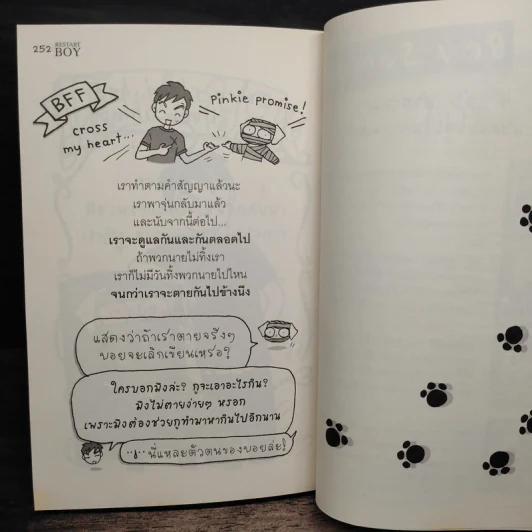 252 RESTART
BOY
BFF
cross
my heart...
Pinkie promise!
เราทำตามคำสัญญาแล้วนะ
เราพาจุ่นกลับมาแล้ว
และนับจากนี้ต่อไป...
เราจะดูแลกันและกันตลอดไป
ถ้าพวกนายไม่ทิ้งเรา
เราก็ไม่มีวันทิ้งพวกนายไปไหน
จนกว่าเราจะตายกันไปข้างนึง
แสดงว่าถ้าเราตายจริงๆ
บอยจะเลิกเขียนเหรอ?
ใครบอกมึงล่ะ? กูจะเอาอะไรกิน?
มึงไม่ตายง่ายๆ หรอก
เพราะมึงต้องช่วยกูทำมาหากินไปอีกนาน
...นี่แหละตัวตนของบอยล่ะ!